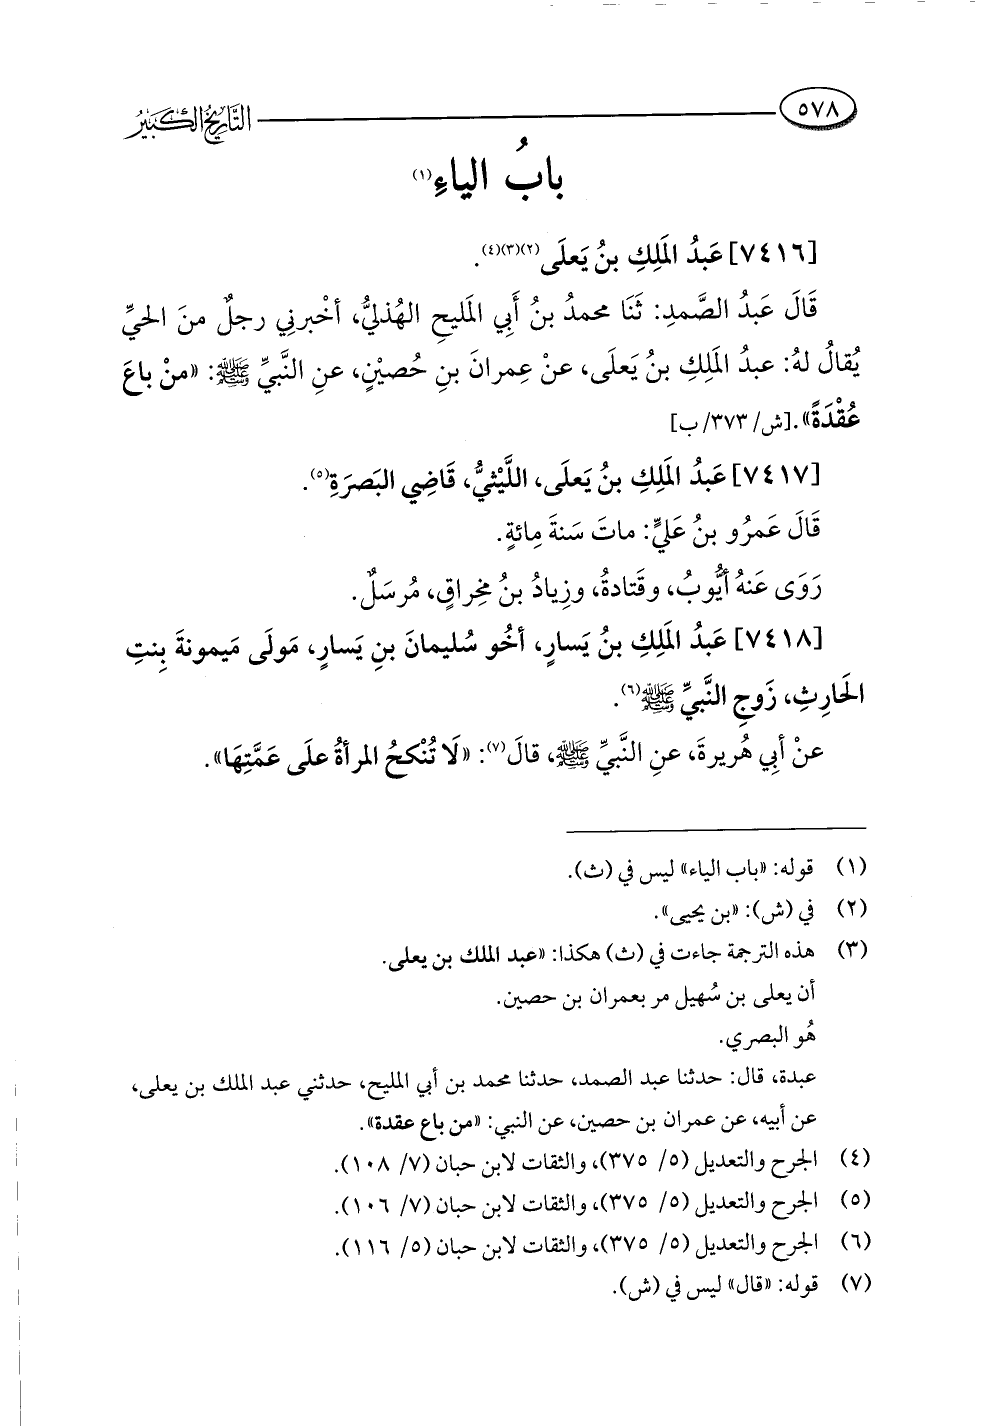 ٥٧٨
التَّارِيخُ الكَبِيرُ
بابُ الياءِ(١)
[٧٤١٦] عَبدُ المَلِكِ بنُ يَعلَى(٢)(٣)(٤).
قَالَ عَبدُ الصَّمدِ: ثَنَا محمدُ بنُ أَبي المَليحِ الهُذليُّ، أخْبرني رجلٌ منَ الحيِّ
يُقالُ لهُ: عبدُ المَلِكِ بنُ يَعلَى، عنْ عِمرانَ بنِ حُصيْنٍ، عنِ النَّبيِّ ﷺ: «منْ باعَ
عُقْدَةً». [ش/ ٣٧٣/ ب]
[٧٤١٧] عَبدُ المَلِكِ بنُ يَعلَى، اللَّيْثيُّ، قَاضِي البَصرَةِ(٥).
قَالَ عَمرُو بنُ عَليٍّ: ماتَ سَنةَ مِائةٍ.
رَوَى عَنهُ أيُّوبُ، وقَتادةُ، وزِيادُ بنُ مِخراقٍ، مُرسَلٌ.
[٧٤١٨] عَبدُ المَلِكِ بنُ يَسارٍ، أخُو سُليمانَ بنِ يَسارٍ، مَولَى مَيمونةَ بِنتِ
الحَارِثِ، زَوجِ النَّبيِّ ﷺ(٦).
عنْ أبي هُريرةَ، عنِ النَّبيِّ ﷺ، قالَ(٧): «لَا تُنْكحُ المرأةُ علَى عَمَّتِهَا».
(١) قوله: «باب الياء» ليس في (ث).
(٢) في (ش): «بن يحيى».
(٣) هذه الترجمة جاءت في (ث) هكذا: «عبد الملك بن يعلى.
أن يعلى بن سُهيل مر بعمران بن حصين.
هُو البصري.
عبدة، قال: حدثنا عبد الصمد، حدثنا محمد بن أبي المليح، حدثني عبد الملك بن يعلى،
عن أبيه، عن عمران بن حصين، عن النبي: «من باع عقدة».
(٤) الجرح والتعديل (٥/ ٣٧٥)، والثقات لابن حبان (٧/ ١٠٨).
(٥) الجرح والتعديل (٥/ ٣٧٥)، والثقات لابن حبان (٧/ ١٠٦).
(٦) الجرح والتعديل (٥/ ٣٧٥)، والثقات لابن حبان (٥/ ١١٦).
(٧) قوله: «قال» ليس في (ش).